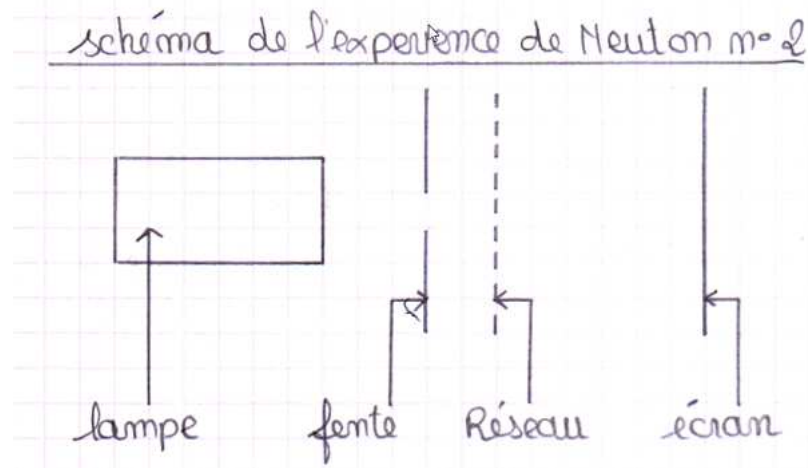 schéma de l'experience de Neuton n° 2
lampe fente Réseau écran